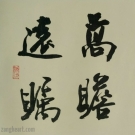 高瞻
遠矚